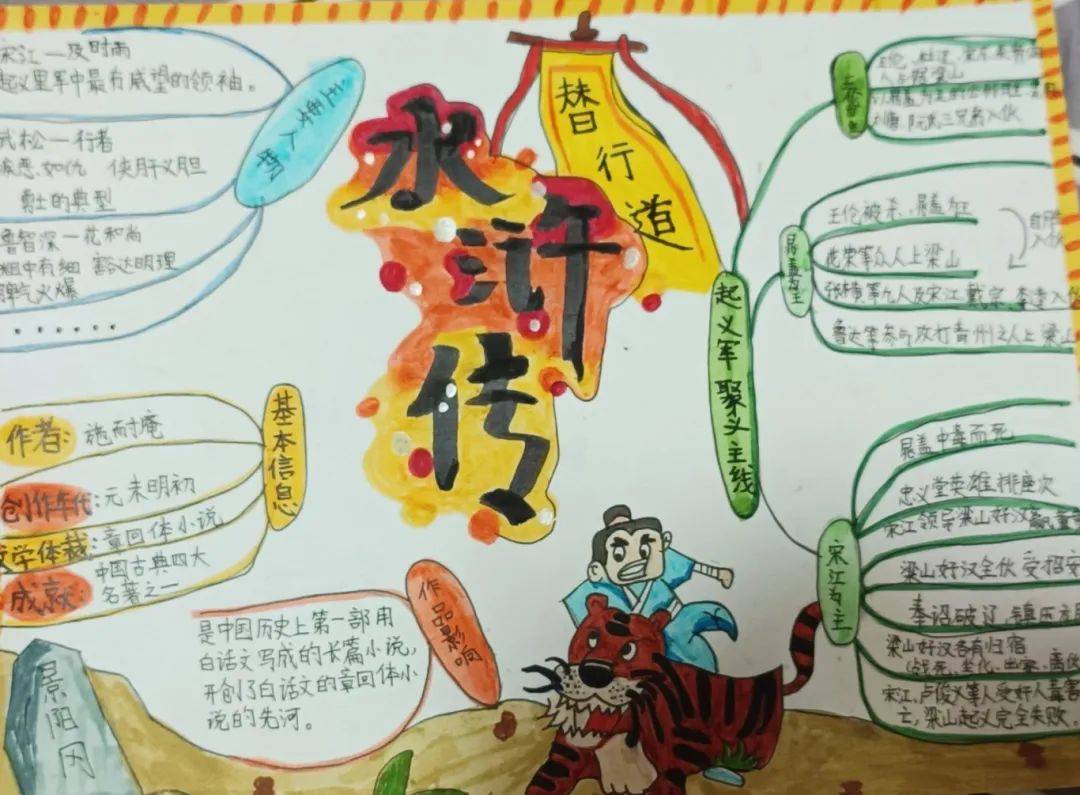 水浒传
替行道
主要人物
宋江一及时雨
起义里军中最有威望的领袖。
武松一行者
疾恶如仇 侠肝义胆
勇士的典型
鲁智深一花和尚
粗中有细 豁达明理
脾气火爆
......
基本信息
作者:施耐庵
创作年代:元末明初
文学体裁:章回体小说
成就:中国古典四大
名著之一
作品影响
是中国历史上第一部用
白话文写成的长篇小说,
开创了白话文的章回体小
说的先河。
景阳冈
起义军聚义主线
晁盖为主
王伦被杀、晁盖为王
花荣等众人上梁山
张横等九人及宋江、戴宗、李逵入伙
鲁达等参与攻打青州之人上梁山
宋江为主
晁盖中毒而死
忠义堂英雄排座次
宋江领导梁山好汉
梁山好汉全伙受招安
奉诏破辽、镇压方
梁山好汉各有归宿
(战死、坐化、出家、离
宋江、卢俊义等人受奸人毒害
亡,梁山起义完全失败。